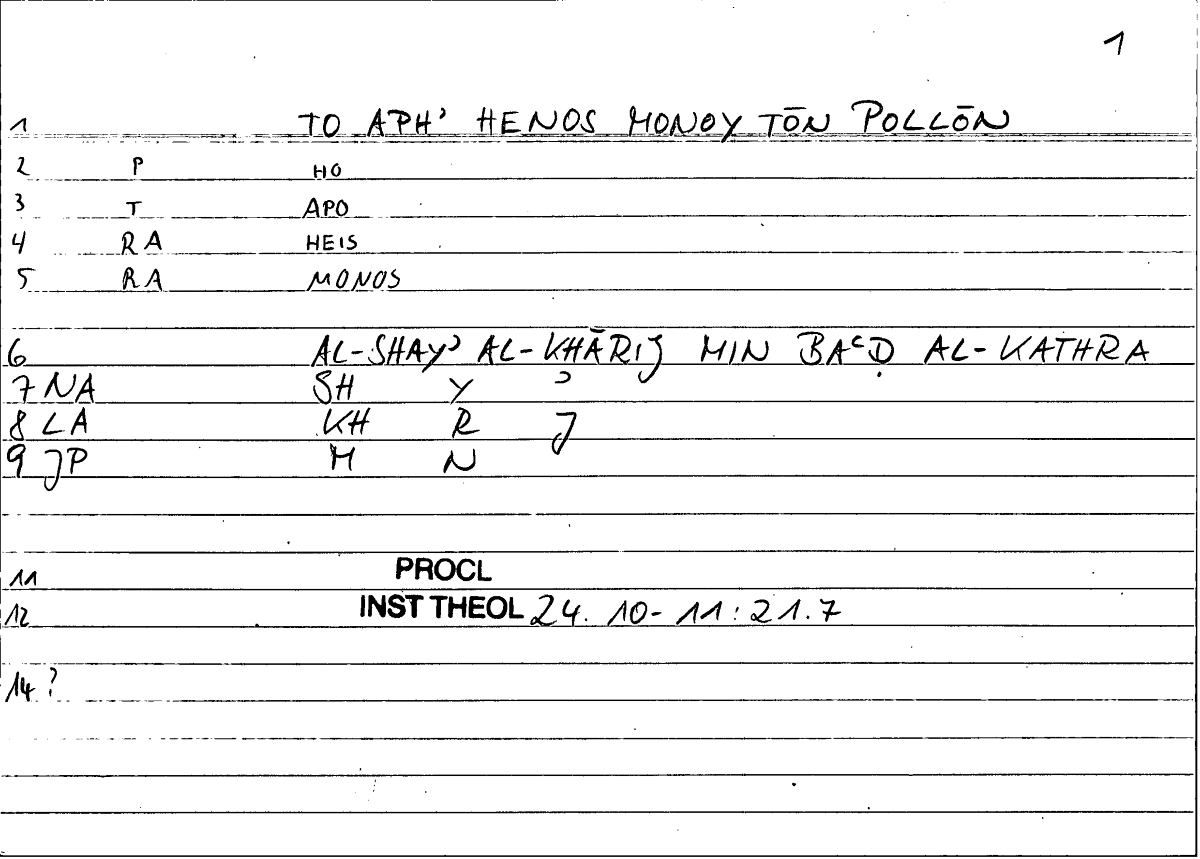 1
1 TO APH' HENOS MONOY TŌN POLLŌN
2 P HO
3 T APO
4 RA HEIS
5 RA MONOS
6 AL-SHAYʾ AL-KHĀRIJ MIN BAʿḌ AL-KATHRA
7 NA SH Y ʾ
8 LA KH R J
9 JP M N
11 PROCL
12 INST THEOL 24. 10-11:21.7
14 ?